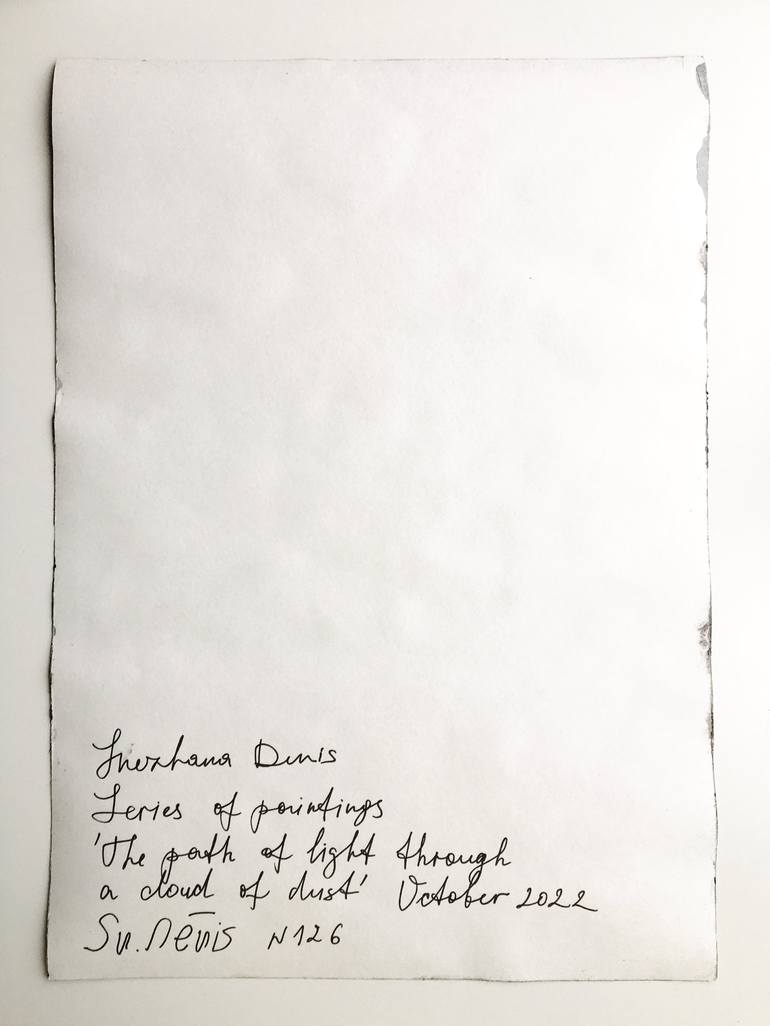 Snezhana Denis
Series of paintings
'The path of light through
a cloud of dust' October 2022
Sn. Denis N126